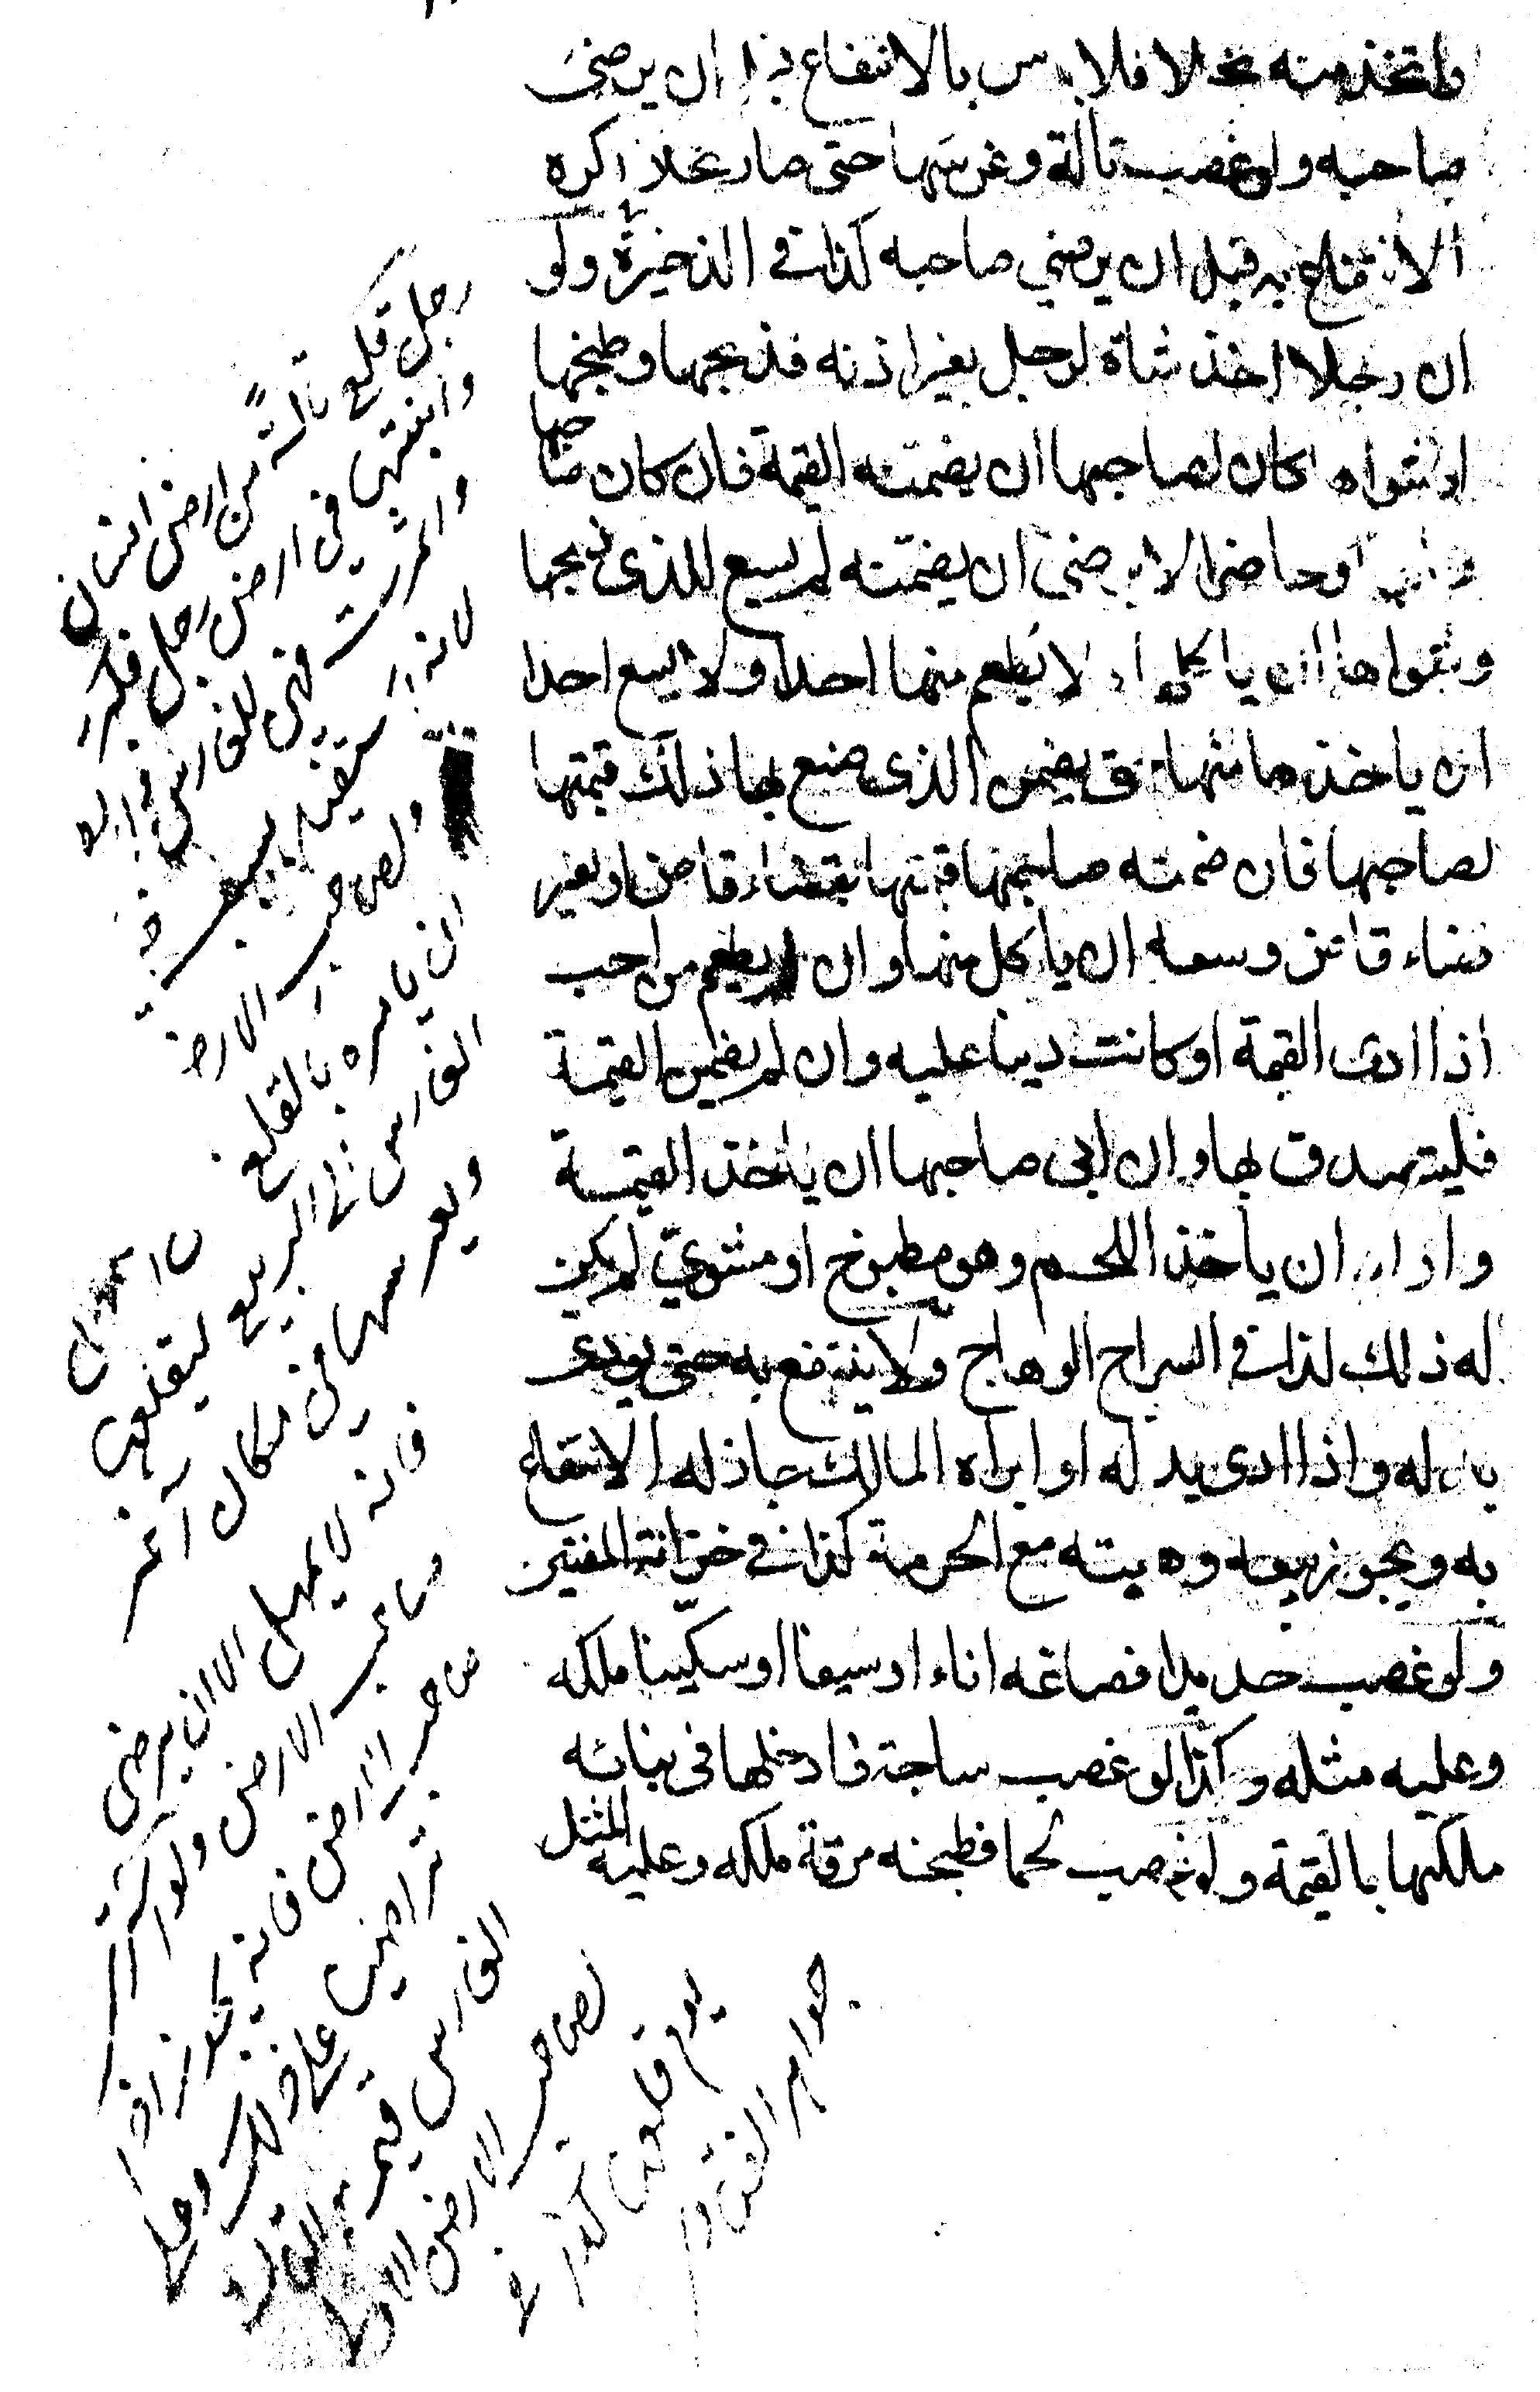 واتخذ منه نخلا فلا باس بالانتفاع به ان يرضى
صاحبه ولو غصب تالة وغرسها حتى صار نخلا اكره
الانتفاع به قبل ان يرضي صاحبه كذا في الذخيرة ولو
ان رجلا اخذ شاة لرجل بغير اذنه فذبحها وطبخها
او شواها كان لصاحبها ان يضمنه القيمة فان كان صاحبها
او حاضرا لا يرضى ان يضمنه لم يسع للذي ذبحها
وشواها ان ياكل ولا يطعم منها احدا ولا يسع احدا
ان ياخذ منها حتى يضمن الذي صنع بها ذلك قيمتها
لصاحبها فان ضمنه صاحبها قيمتها بقضاء قاض او بغير
قضاء قاض وسعه ان ياكل منها وان يطعم من احب
اذا ادى القيمة او كانت دينا عليه وان لم يضمن القيمة
فليتصدق بها وان ابى صاحبها ان ياخذ القيمة
واراد ان ياخذ اللحم وهو مطبوخ او مشوي لم يكن
له ذلك كذا في السراج الوهاج ولا ينتفع به حتى يودى
بدله واذا ادى بدله او ابراه المالك جاز له الانتفاع
به ويجوز بيعه وهبته مع الحرمة كذا في خزانة المفتين
ولو غصب حديدا فصاغه اناء او سيفا او سكينا ملكه
وعليه مثله وكذا لو غصب ساجة فادخلها في بنائه
ملكها بالقيمة ولو غصب لحما فطبخه مرقة ملكه وعليه المثل
رجل قلع تالة من ارض انسان
وانبتها في ارض رجل فكبرت
واثمرت فهي للغارس
ولصاحب الارض
ان يامره بالقلع
الغارس في الربيع ليقلعها
ويغرسها في مكان اخر
فانه لا يمهل الا ان يرضى
صاحب الارض ولو اشترى
صاحب الارض فانه يجوز اذا
تراضيا على ذلك
الغارس قيمة التالة
لصاحب الارض
يوم قلعها كذا في
جواهر الفتاوى